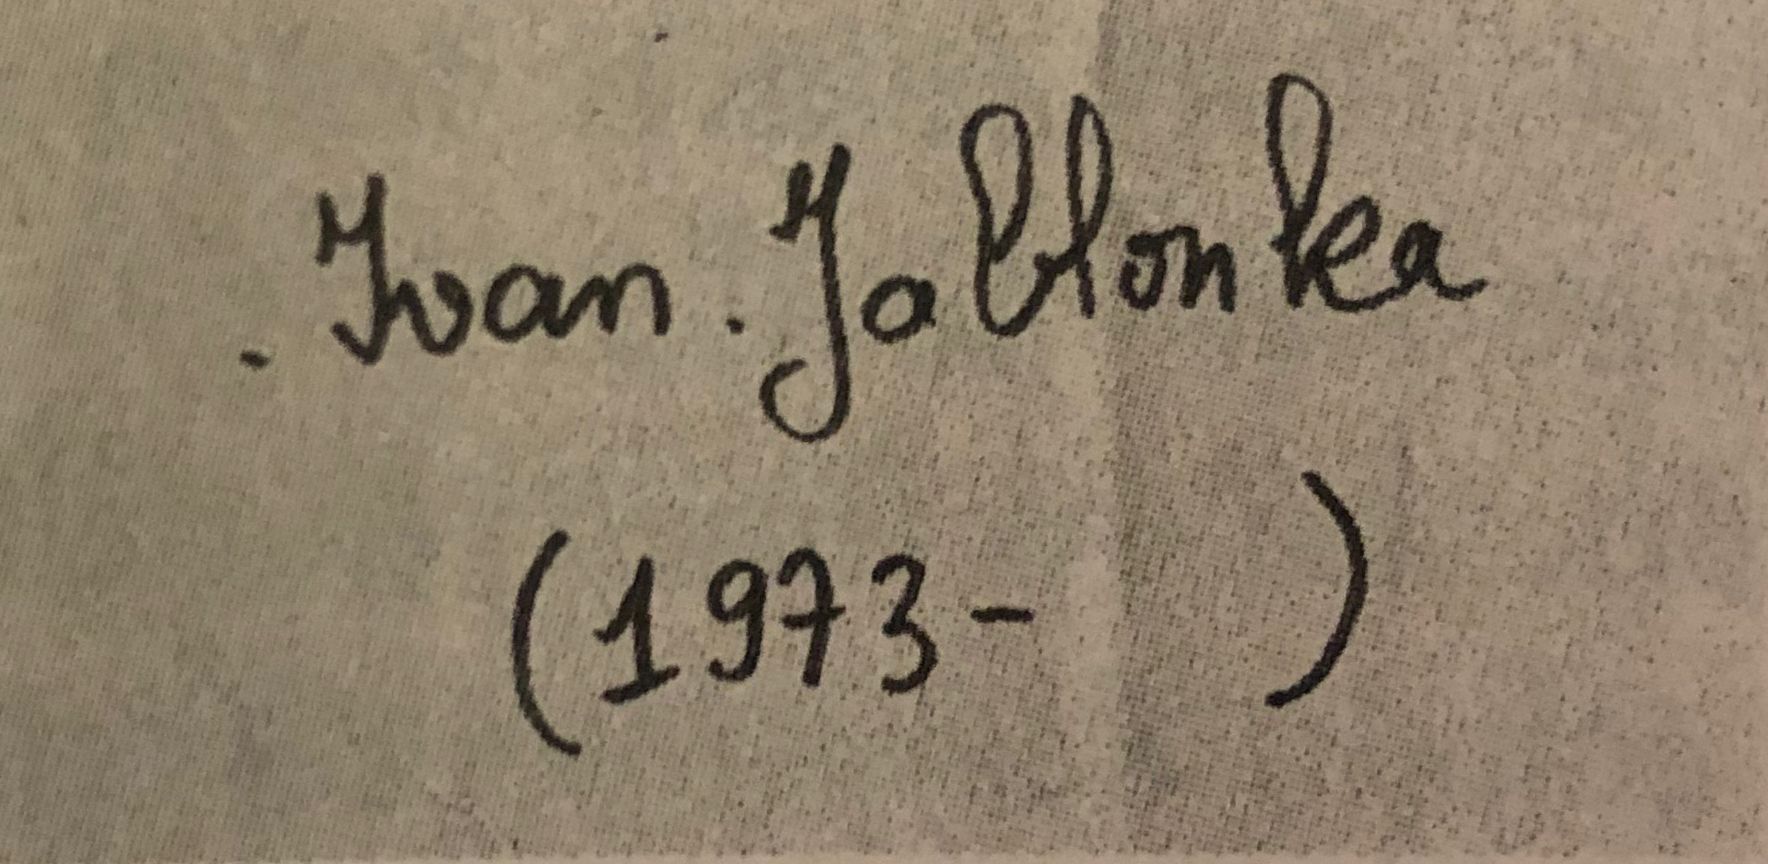 . Ivan . Jablonka
(1973- )